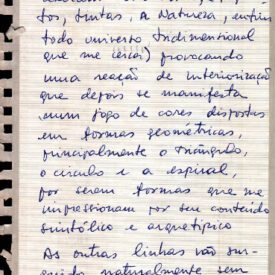 tos, frutas, a Natureza, enfim
todo universo tridimensional
que me cerca) provocando
uma reação de interiorização
que depois se manifesta
num jogo de cores dispostas
em formas geométricas,
principalmente o triângulo,
o círculo e a espiral,
por serem formas que me
impressionam por seu conteúdo
simbólico e arquetípico
As outras linhas vão sur-
gindo naturalmente sem